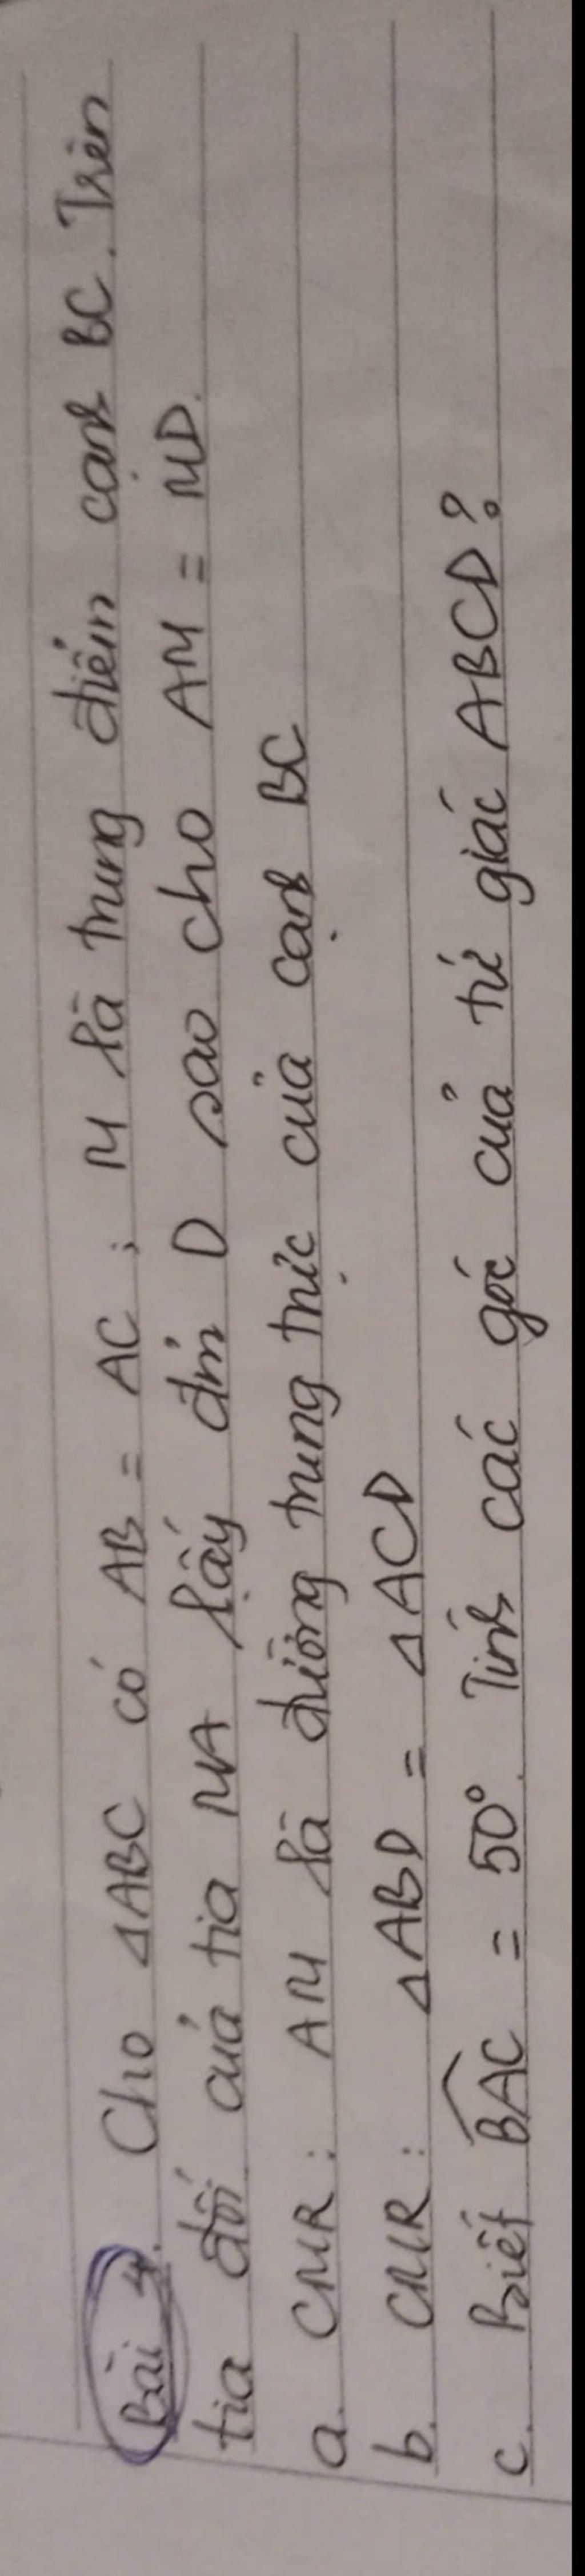 Bài 4. Cho ΔABC có AB = AC ; M là trung điểm cạnh BC. Trên
tia đối của tia MA lấy đm D sao cho AM = MD.
a. CMR : AM là đường trung trực của cạnh BC
b. CMR : ΔABD = ΔACD
c. Biết BAC = 50°. Tính các góc của tứ giác ABCD ?